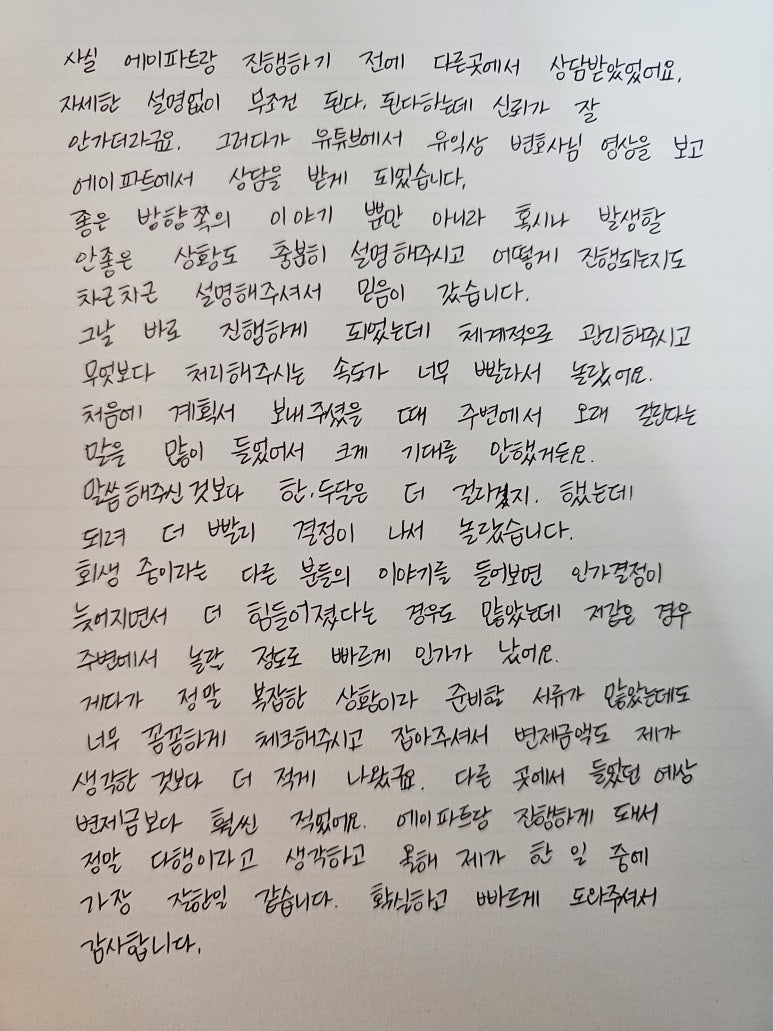 사실 에이파트랑 진행하기 전에 다른곳에서 상담받았었어요.
자세한 설명없이 무조건 된다. 된다하는데 신뢰가 잘
안가더라구요. 그러다가 유튜브에서 유익상 변호사님 영상을 보고
에이파트에서 상담을 받게 되었습니다.
좋은 방향쪽의 이야기 뿐만 아니라 혹시나 발생할
안좋은 상황도 충분히 설명해주시고 어떻게 진행되는지도
차근차근 설명해주셔서 믿음이 갔습니다.
그날 바로 진행하게 되었는데 체계적으로 관리해주시고
무엇보다 처리해주시는 속도가 너무 빨라서 놀랐어요.
처음에 계획서 보내주셨을 때 주변에서 오래 걸린다는
말을 많이 들었어서 크게 기대를 안했거든요.
말씀해주신것보다 한.두달은 더 걸리겠지. 했는데
되려 더 빨리 결정이 나서 놀랐습니다.
회생 중이라는 다른 분들의 이야기를 들어보면 인가결정이
늦어지면서 더 힘들어졌다는 경우도 많았는데 저같은 경우
주변에서 놀랄 정도로 빠르게 인가가 났어요.
게다가 정말 복잡한 상황이라 준비할 서류가 많았는데도
너무 꼼꼼하게 체크해주시고 잡아주셔서 변제금액도 제가
생각한 것보다 더 적게 나왔구요. 다른 곳에서 들었던 예상
변제금보다 훨씬 적었어요. 에이파트랑 진행하게 돼서
정말 다행이라고 생각하고 올해 제가 한 일 중에
가장 잘한일 같습니다. 확실하고 빠르게 도와주셔서
감사합니다.